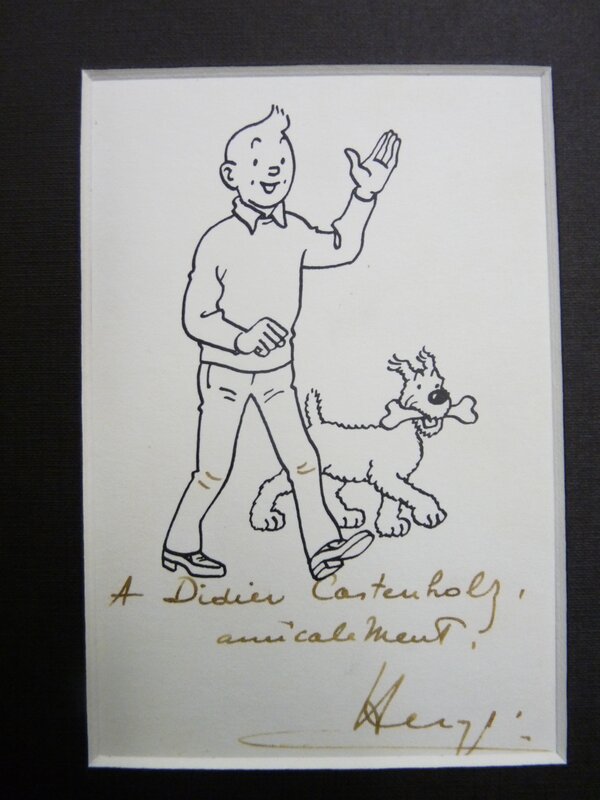 A Didier Castenholz,
amicalement.
Hergé